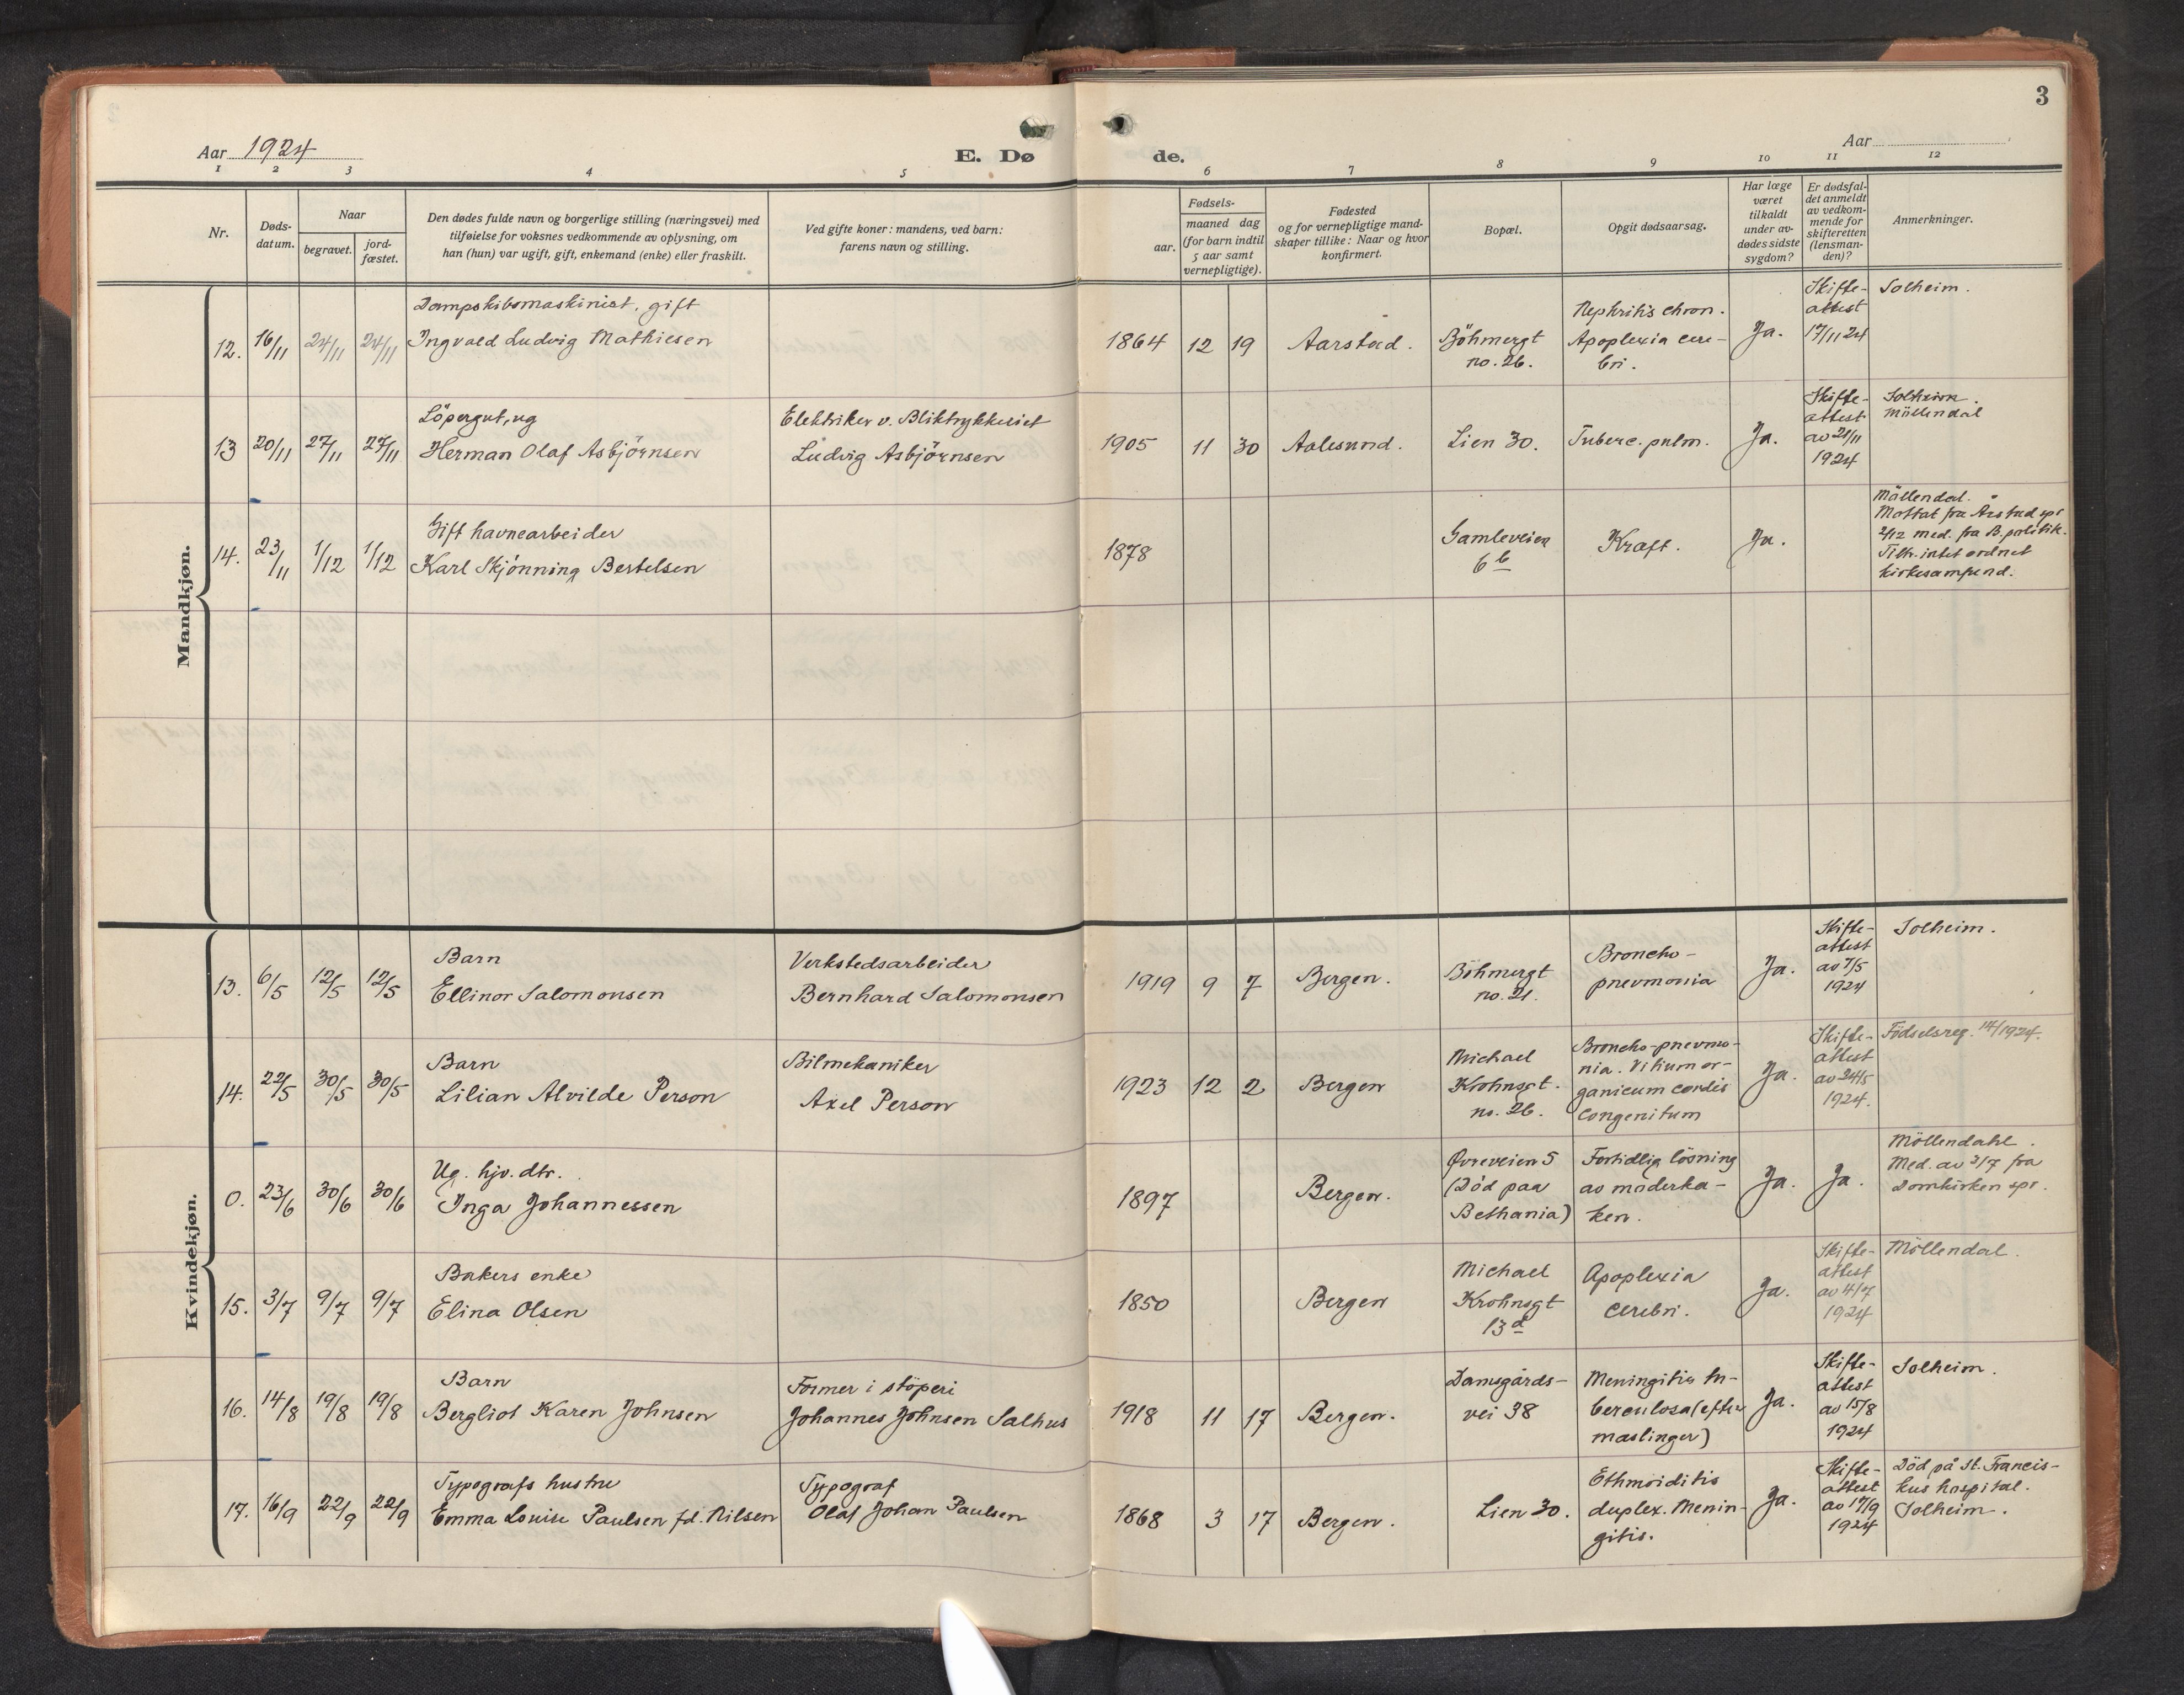 3
Aar 1924
E. Døde.
Aar
1 2 3 4 5 6 7 8 9 10 11 12
Nr.
Døds-
datum.
Naar
begravet.
jord-
fæstet.
Den dødes fulde navn og borgerlige stilling (næringsvei) med
tilføielse for voksnes vedkommende av oplysning, om
han (hun) var ugift, gift, enkemand (enke) eller fraskilt.
Ved gifte koner: mandens, ved barn:
farens navn og stilling.
Fødsels-
aar.
maaned dag
(for barn indtil
5 aar samt
vernepligtige).
Fødested
og for vernepligtige mand-
skaper tillike: Naar og hvor
konfirmert.
Bopæl.
Opgit dødsaarsag.
Har læge
været
tilkaldt
under av-
dødes sidste
sygdom?
Er dødsfal-
det anmeldt
av vedkom-
mende for
skifteretten
(lensman-
den)?
Anmerkninger.
Mandkjøn.
12. 16/11 24/11 24/11
Dampskibsmaskinist, gift
Ingvald Ludvig Mathiesen
1864 12 19 Aarstad.
Böhmergt
no. 26.
Nephritis chron.
Apoplexia cere-
bri.
Ja.
Skifte-
attest
17/11 24
Solheim.
13 20/11 27/11 27/11
Löpergut, ug
Herman Olaf Asbjörnsen
Elektriker v. Bliktrykkeriet
Ludvig Asbjörnsen
1905 11 30 Aalesund. Lien 30. Tuberc. pulm. Ja.
Skifte-
attest
av 21/11
1924
Solheim.
Möllendal
14. 23/11 1/12 1/12
Gift havnearbeider
Karl Skjönning Bertelsen
1878
Gamleveien
6 b
Kraft. Ja.
Möllendal.
Mottat fra Årstad spr
2/12 med. fra B. politik.
Tilh. intet ordnet
kirkesamfund.
Kvindekjøn.
13. 6/5 12/5 12/5
Barn
Ellinor Salomonsen
Verkstedsarbeider
Bernhard Salomonsen
1919 9 7 Bergen.
Böhmergt
no. 21.
Broncho-
pnevmonia
Ja.
Skifte-
attest
av 7/5
1924
Solheim.
14. 22/5 30/5 30/5
Barn
Lilian Alvilde Person
Bilmekaniker
Axel Person
1923 12 2 Bergen
Michael
Krohnsgt.
no. 26.
Broncho-pnevmo-
nia. Vitium or-
ganicum cordis
congenitum
Ja.
Skifte-
attest
av 24/5
1924.
Födselsreg. 14/1924.
0. 23/6 30/6 30/6
Ug. hjv. dtr.
Inga Johannessen
1897 Bergen.
Øvreveien 5
(Död paa
Bethania)
Fortidlig lösning
av moderka-
ken.
Ja. Ja.
Möllendahl.
Med. av 2/7 fra
Domkirken spr.
15. 3/7 9/7 9/7
Bakers enke
Elina Olsen
1850 Bergen
Michael
Krohnsgt
13 d
Apoplexia
cerebri.
Ja.
Skifte-
attest
av 4/7
1924
Möllendal.
16. 14/8 19/8 19/8
Barn
Bergliot Karen Johnsen
Former i stöperi
Johannes Johnsen Salhus
1918 11 17 Bergen.
Damsgårds-
vei 38
Meningitis tu-
berculosa (efter
maslinger)
Ja.
Skifte-
attest
av 15/8
1924
Solheim.
17. 16/9 22/9 22/9
Typografs hustru
Emma Louise Paulsen fd. Nilsen
Typograf
Olaf Johan Paulsen
1868 3 17 Bergen. Lien 30.
Ethmoiditis
duplex. Menin-
gitis.
Ja.
Skifte-
attest
av 17/9
1924
Död på St. Francis-
kus hospital.
Solheim.